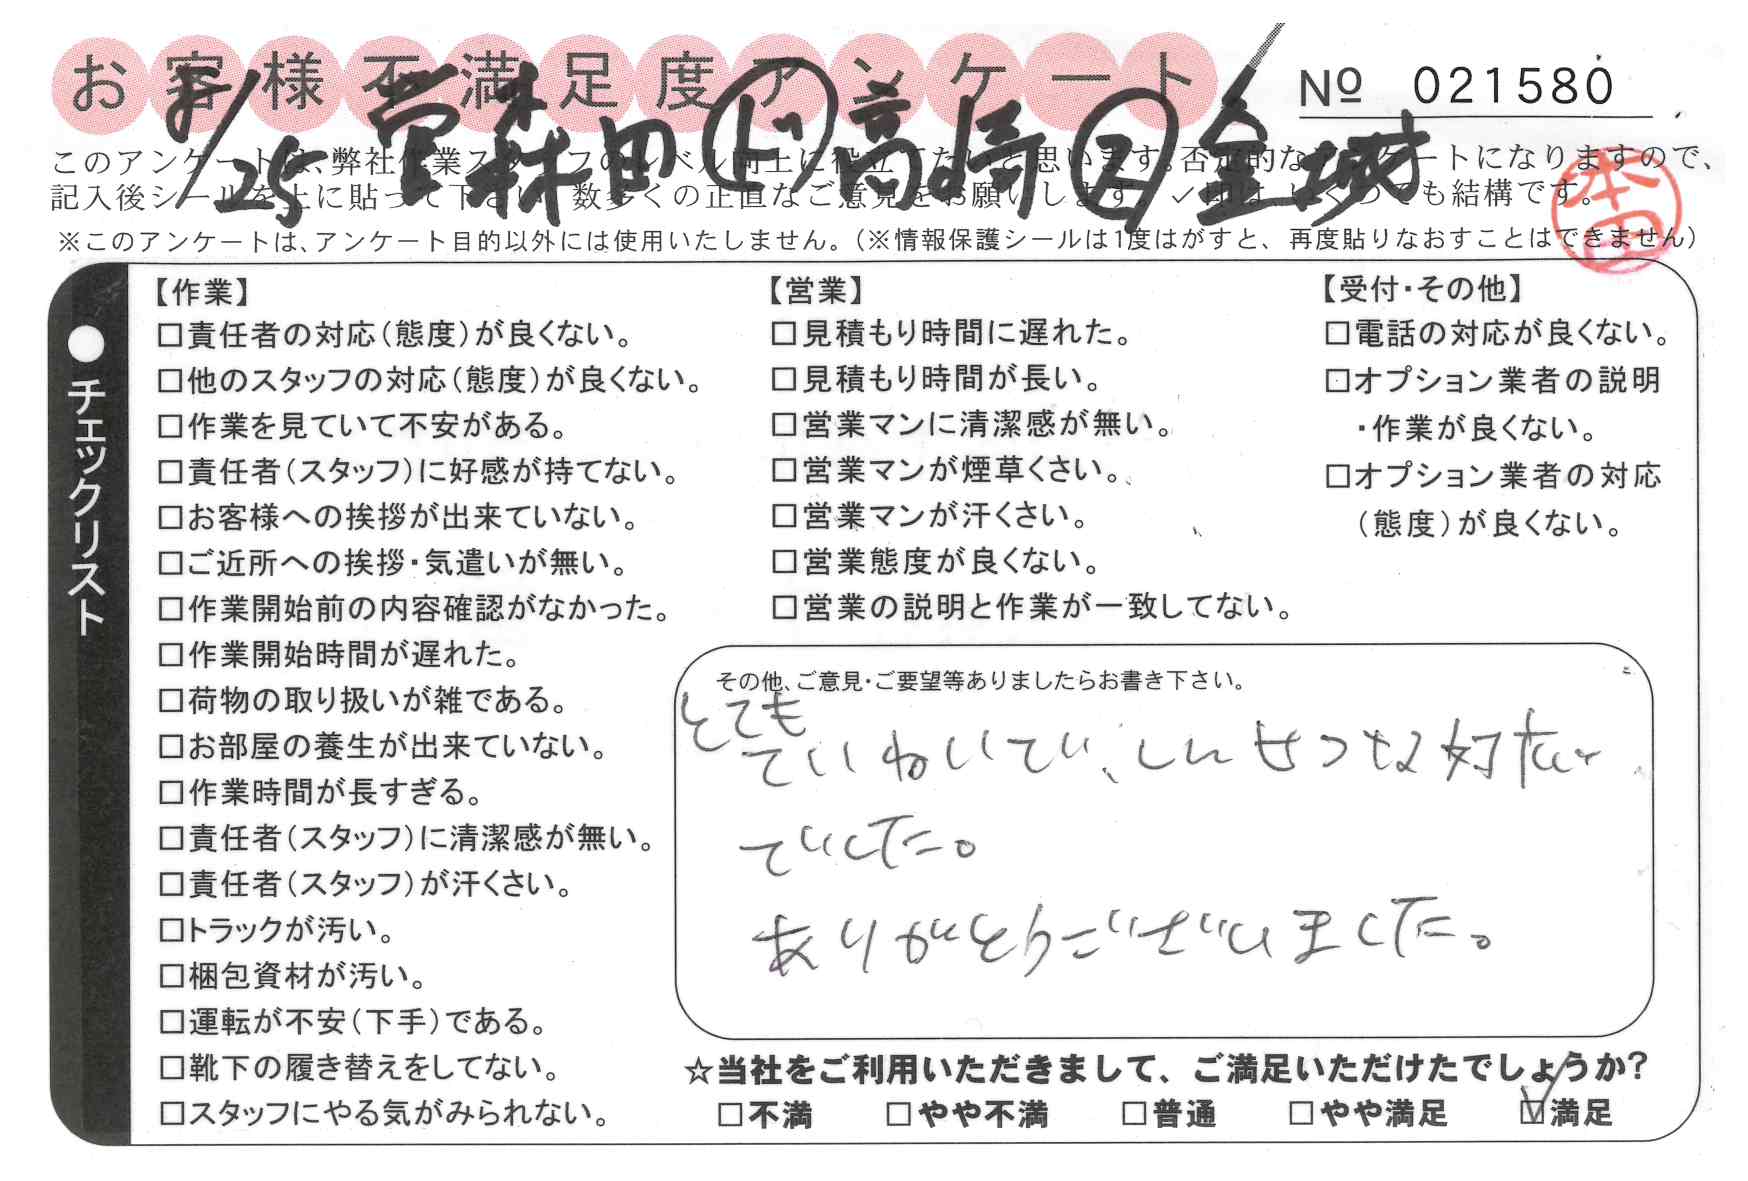 お客様不満足度アンケート
№ 021580
8/25 営 森田 ㊤ 高崎 ㊐ 全 場
このアンケートは、弊社作業スタッフのレベル向上に役立てたいと思います。否定的なアンケートになりますので、
記入後シールを上に貼って下さい。数多くの正直なご意見をお願いします。✓印は、いくつでも結構です。
本田
※このアンケートは、アンケート目的以外には使用いたしません。(※情報保護シールは1度はがすと、再度貼りなおすことはできません)
●チェックリスト
【作業】
□責任者の対応(態度)が良くない。
□他のスタッフの対応(態度)が良くない。
□作業を見ていて不安がある。
□責任者(スタッフ)に好感が持てない。
□お客様への挨拶が出来ていない。
□ご近所への挨拶・気遣いが無い。
□作業開始前の内容確認がなかった。
□作業開始時間が遅れた。
□荷物の取り扱いが雑である。
□お部屋の養生が出来ていない。
□作業時間が長すぎる。
□責任者(スタッフ)に清潔感が無い。
□責任者(スタッフ)が汗くさい。
□トラックが汚い。
□梱包資材が汚い。
□運転が不安(下手)である。
□靴下の履き替えをしてない。
□スタッフにやる気がみられない。
【営業】
□見積もり時間に遅れた。
□見積もり時間が長い。
□営業マンに清潔感が無い。
□営業マンが煙草くさい。
□営業マンが汗くさい。
□営業態度が良くない。
□営業の説明と作業が一致してない。
【受付・その他】
□電話の対応が良くない。
□オプション業者の説明
・作業が良くない。
□オプション業者の対応
(態度)が良くない。
その他、ご意見・ご要望等ありましたらお書き下さい。
とても
ていねいでい、しんせつな対応
でした。
ありがとうございました。
☆当社をご利用いただきまして、ご満足いただけたでしょうか?
□不満 □やや不満 □普通 □やや満足 ☑満足